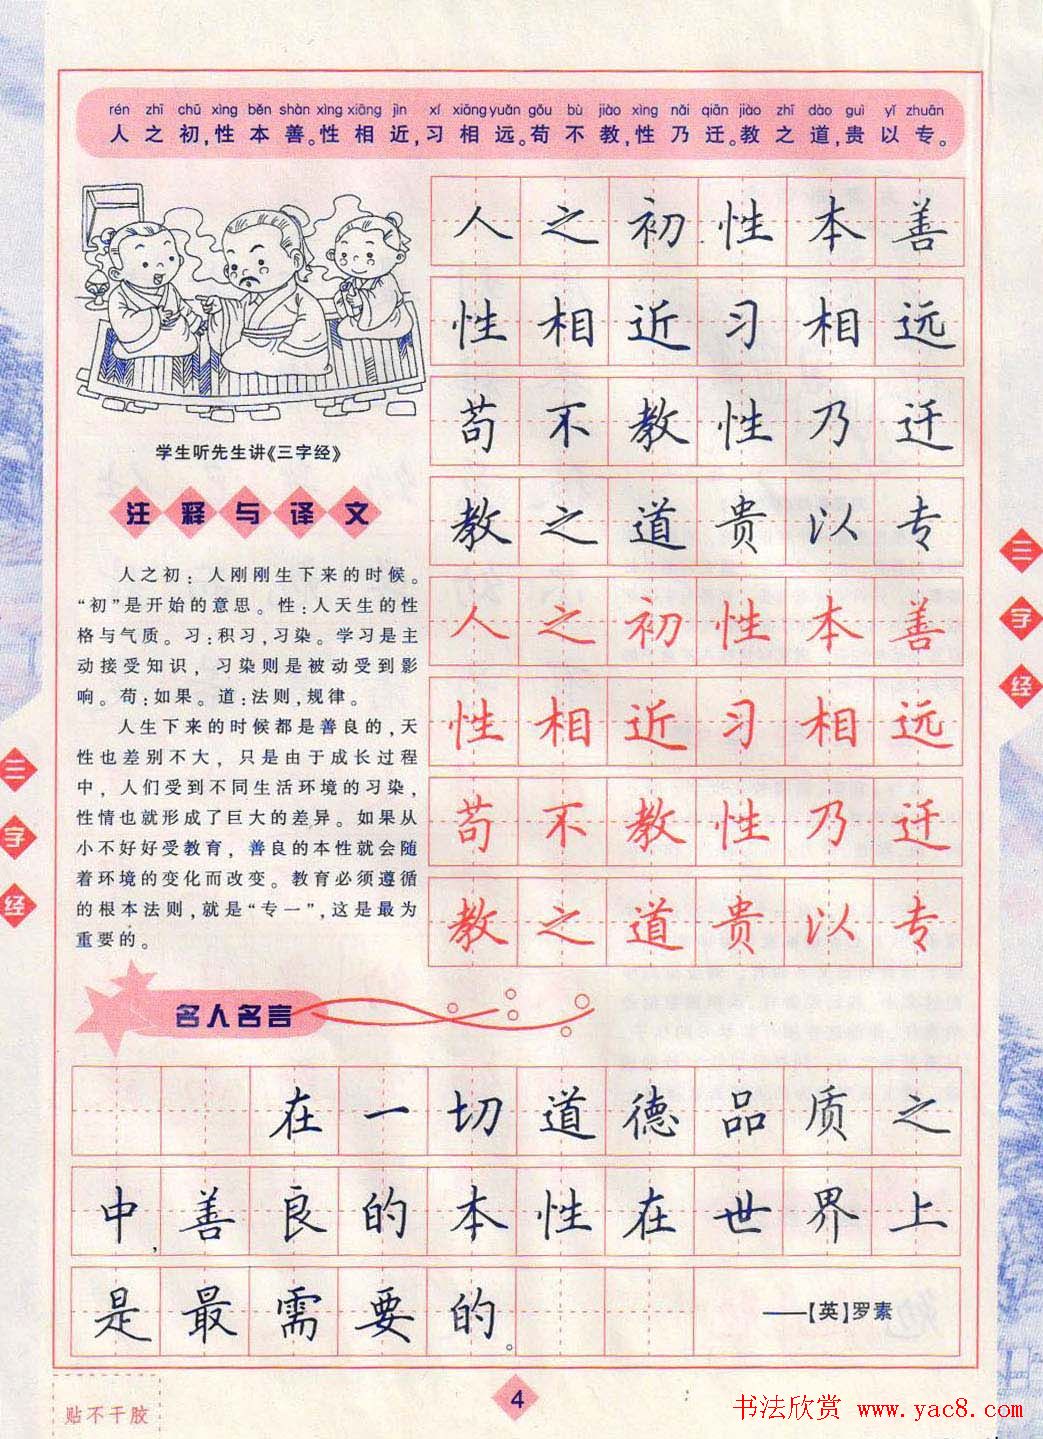 rén zhī chū xìng běn shàn xìng xiāng jìn xí xiāng yuǎn gǒu bù jiào xìng nǎi qiān jiào zhī dào guì yǐ zhuān
人之初,性本善。性相近,习相远。苟不教,性乃迁。教之道,贵以专。
人之初性本善
性相近习相远
苟不教性乃迁
教之道贵以专
人之初性本善
性相近习相远
苟不教性乃迁
教之道贵以专
学生听先生讲《三字经》
注释与译文
人之初：人刚刚生下来的时候。
“初”是开始的意思。性：人天生的性
格与气质。习：积习，习染。学习是主
动接受知识，习染则是被动受到影
响。苟：如果。道：法则，规律。
人生下来的时候都是善良的，天
性也差别不大，只是由于成长过程
中，人们受到不同生活环境的习染，
性情也就形成了巨大的差异。如果从
小不好好受教育，善良的本性就会随
着环境的变化而改变。教育必须遵循
的根本法则，就是“专一”，这是最为
重要的。
三字经
三字经
名人名言
在一切道德品质之
中，善良的本性在世界上
是最需要的。
——【英】罗素
贴不干胶
4
书法欣赏 www.yac8.com